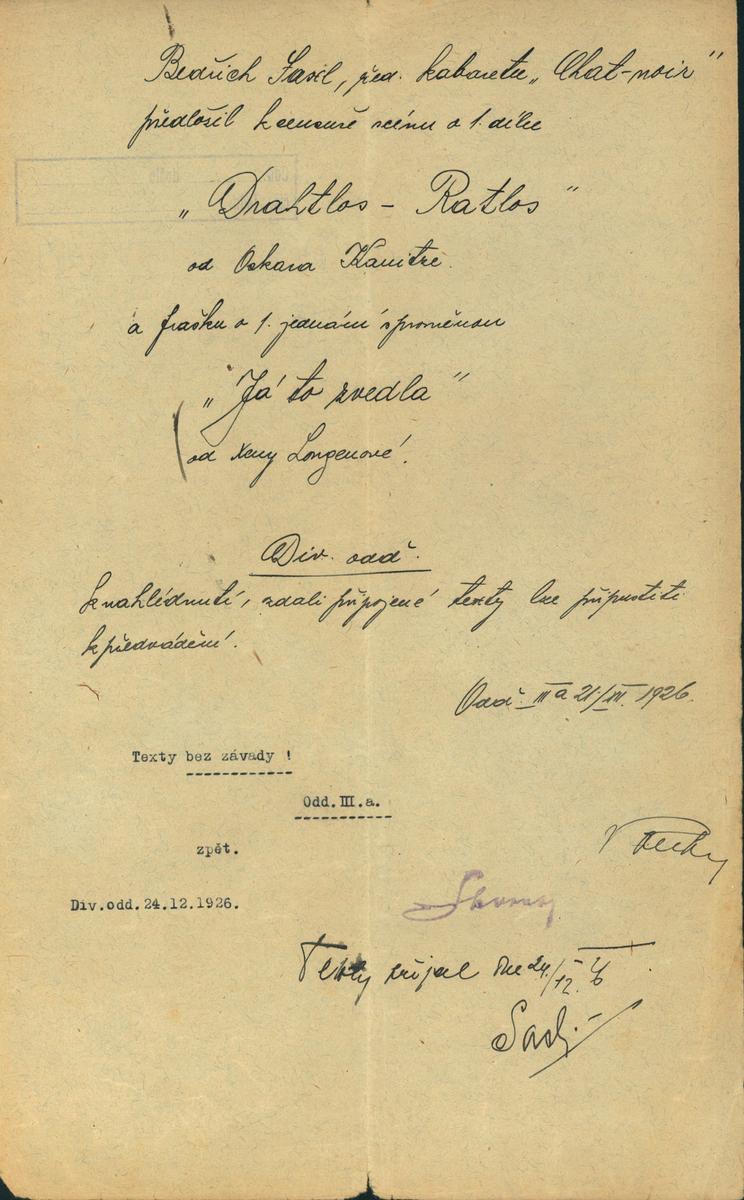 Bedřich Jasil, řed. kabaretu „Chat-noir"
předložil k censuře scénu o 1. dílu
„Drahtlos - Ratlos"
od Oskara Kanitze.
a frašku o 1. jednání s proměnou
„Já to zvedla"
od Xeny Longenové.
Div. odd.
k nahlédnutí, zdali připojené texty lze připustiti
k předvádění.
Odd. III a 21/XII. 1926.
Texty bez závady !
Odd.III.a.
zpět.
Div.odd.24.12.1926.
Texty přijal dne 24/12. 26